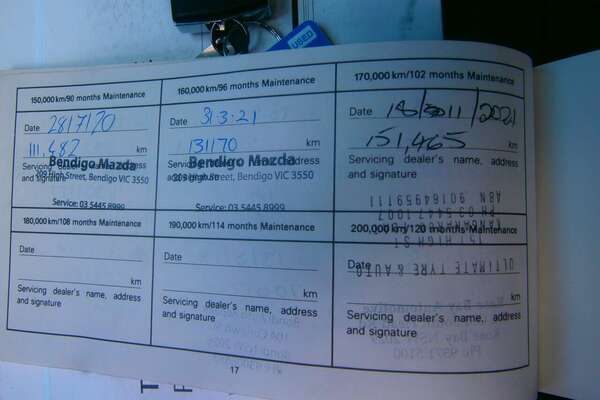 USED
150,000 km/90 months Maintenance
Date 28/7/20
111,482 km
Servicing dealer's name, address
and signature
Bendigo Mazda
209 High Street, Bendigo VIC 3550
Service: 03 5445 8999
160,000 km/96 months Maintenance
Date 31·3·21
131170 km
Servicing dealer's name, address
and signature
Bendigo Mazda
209 High Street, Bendigo VIC 3550
Service: 03 5445 8999
170,000 km/102 months Maintenance
Date 11/2021
151,465 km
Servicing dealer's name, address
and signature
ULTIMATE TYRE & AUTO
151 HIGH ST
ABN 90164959111
180,000 km/108 months Maintenance
Date
km
Servicing dealer's name, address
and signature
190,000 km/114 months Maintenance
Date
km
Servicing dealer's name, address
and signature
200,000 km/120 months Maintenance
Date
km
Servicing dealer's name, address
and signature
17